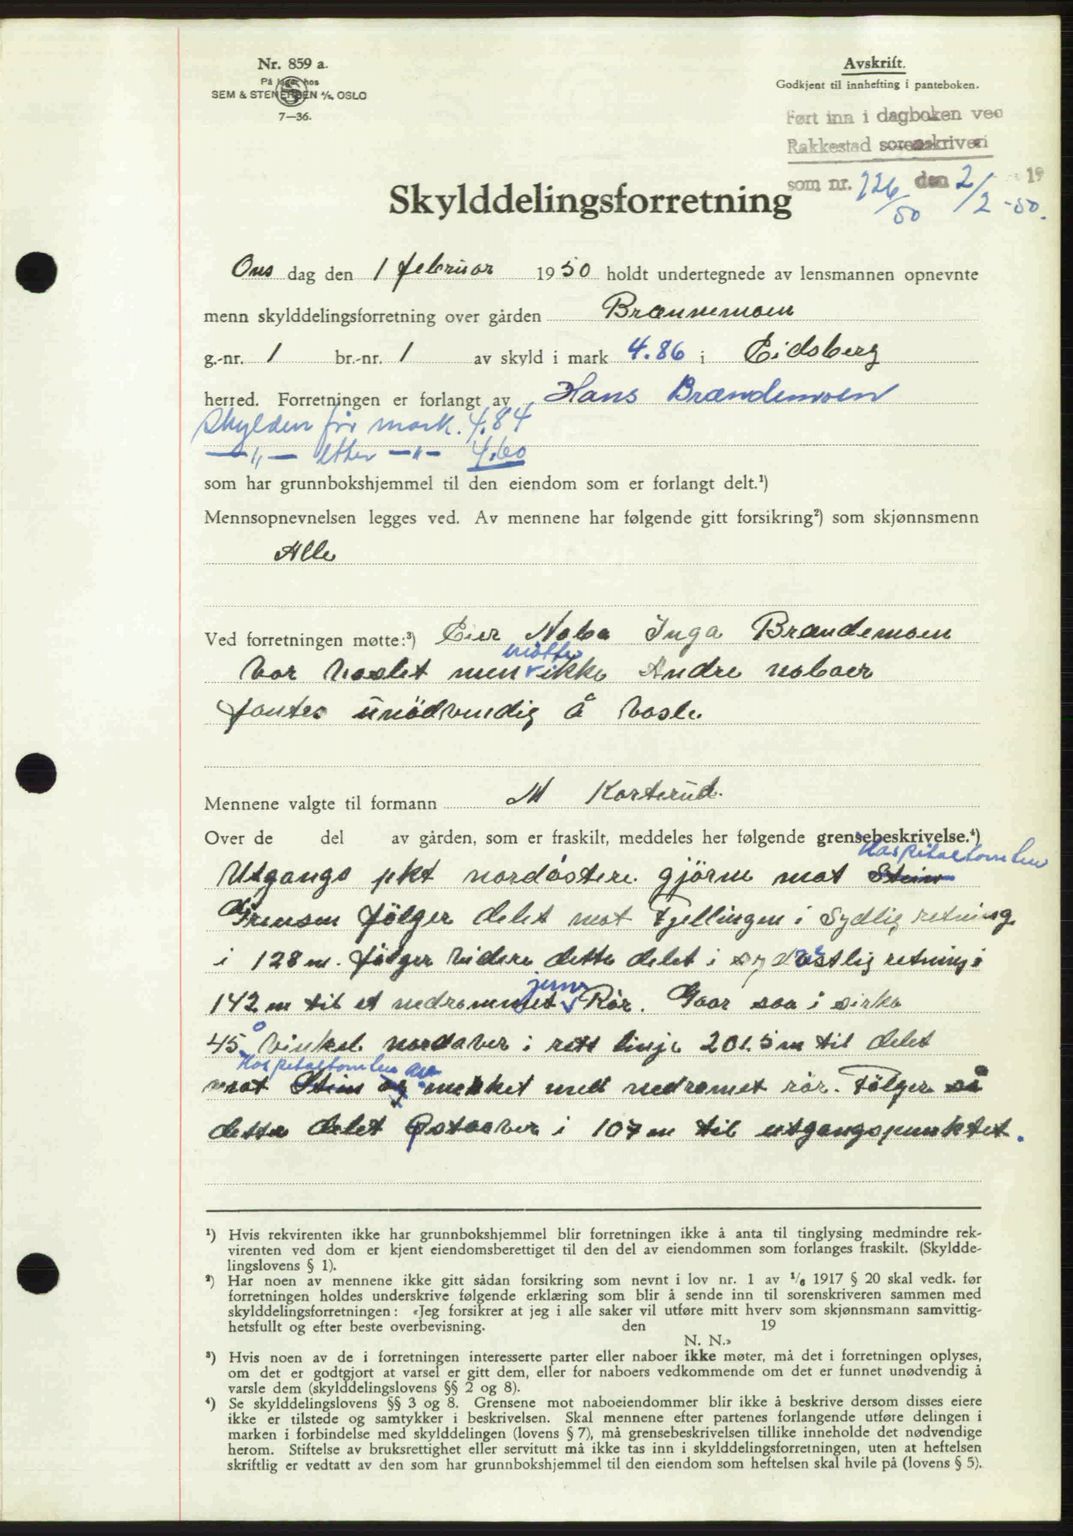 Nr. 859 a.
På lager hos
SEM & STENERSEN A/S, OSLO
7—36.
Avskrift.
Godkjent til innhefting i panteboken.
Ført inn i dagboken ved
Rakkestad sorenskriveri
som nr. 226/50 den 2/2 - 50.
Skylddelingsforretning
Ons dag den 1 februar 1950 holdt undertegnede av lensmannen opnevnte
menn skylddelingsforretning over gården Brænnemoen
g.-nr. 1 br.-nr. 1 av skyld i mark 4.86 i Eidsberg
herred. Forretningen er forlangt av Hans Brændemoen
Skylden før mark. 4.84
—„— etter —„— 4.60
som har grunnbokshjemmel til den eiendom som er forlangt delt.¹)
Mennsopnevnelsen legges ved. Av mennene har følgende gitt forsikring²) som skjønnsmenn
Alle
Ved forretningen møtte:³) Eier Nabo Inga Brændemoen
møtte
var varslet men ikke Andre naboer
fantes unödvendig å varsle
Mennene valgte til formann M Korterud.
Over de del av gården, som er fraskilt, meddeles her følgende grensebeskrivelse.⁴)
Hospitaltomten
Utgangs pkt nordöstere gjörne mot Stein
Grensen fölger delet mot Fjellingen i Sydlig retning
i 128 m. fölger videre dette delet i sydöstlig retning i
jern
142 m til et nedrammet Rör. Gaar saa i sirka
45° vinkel nordover i rett linje 201.5 m til delet
Hospitaltomten
mot Stein og merket med nedramet rör. Fölger så
dette delet Östaover i 107 m til utgangspunktet.
¹) Hvis rekvirenten ikke har grunnbokshjemmel blir forretningen ikke å anta til tinglysing medmindre rek-
virenten ved dom er kjent eiendomsberettiget til den del av eiendommen som forlanges fraskilt. (Skyldde-
lingslovens § 1).
²) Har noen av mennene ikke gitt sådan forsikring som nevnt i lov nr. 1 av 1/6 1917 § 20 skal vedk. før
forretningen holdes underskrive følgende erklæring som blir å sende inn til sorenskriveren sammen med
skylddelingsforretningen: «Jeg forsikrer at jeg i alle saker vil utføre mitt hverv som skjønnsmann samvittig-
hetsfullt og efter beste overbevisning. den 19
N. N.»
³) Hvis noen av de i forretningen interesserte parter eller naboer ikke møter, må det i forretningen oplyses,
om det er godtgjort at varsel er gitt dem, eller for naboers vedkommende om det er funnet unødvendig å
varsle dem (skylddelingslovens §§ 2 og 8).
⁴) Se skylddelingslovens §§ 3 og 8. Grensene mot naboeiendommer blir ikke å beskrive dersom disses eiere
ikke er tilstede og samtykker i beskrivelsen. Skal mennene efter partenes forlangende utføre delingen i
marken i forbindelse med skylddelingen (lovens § 7), må grensebeskrivelsen tillike inneholde det nødvendige
herom. Stiftelse av bruksrettighet eller servitutt må ikke tas inn i skylddelingsforretningen, uten at heftelsen
skriftlig er vedtatt av den som har grunnbokshjemmel til den eiendom som heftelsen skal hvile på (lovens § 5).